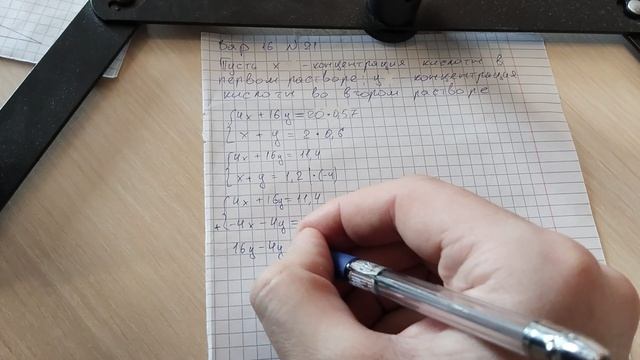 Вар 16 № 21
Пусть x - концентрация кислоты в
первом растворе, y - концентрация
кислоты во втором растворе
{4x + 16y = 20 · 0,57
{x + y = 2 · 0,6
{4x + 16y = 11,4
{x + y = 1,2 | · (-4)
{4x + 16y = 11,4
+ {-4x - 4y =
16y - 4y